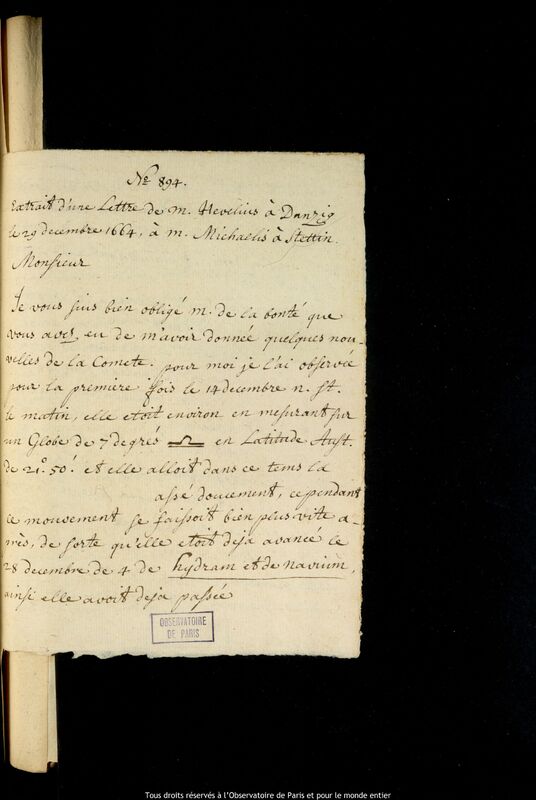 No 894.
Extrait d'une Lettre de M. Hevelius à Danzig
le 29 decembre 1664, à M. Michaelis à Stettin.
Monsieur
Je vous suis bien obligé M. de la bonté que
vous avez eu de m'avoir donnée quelques nou-
velles de la Comete. pour moi je l'ai observée
pour la premiere fois le 14 decembre n. St.
le matin, elle etoit environ en mesurant sur
un Globe de 7 degrés ♎ en Latitude Aust.
de 21° 50' et elle alloit dans ce tems la
assé doucement, cependant
ce mouvement se faisoit bien plus vite a-
près, de sorte qu'elle etoit deja avancé le
28 decembre de 4 de hydram et de navium,
ainsi elle avoit deja passée
OBSERVATOIRE
DE PARIS
Tous droits réservés à l'Observatoire de Paris et pour le monde entier